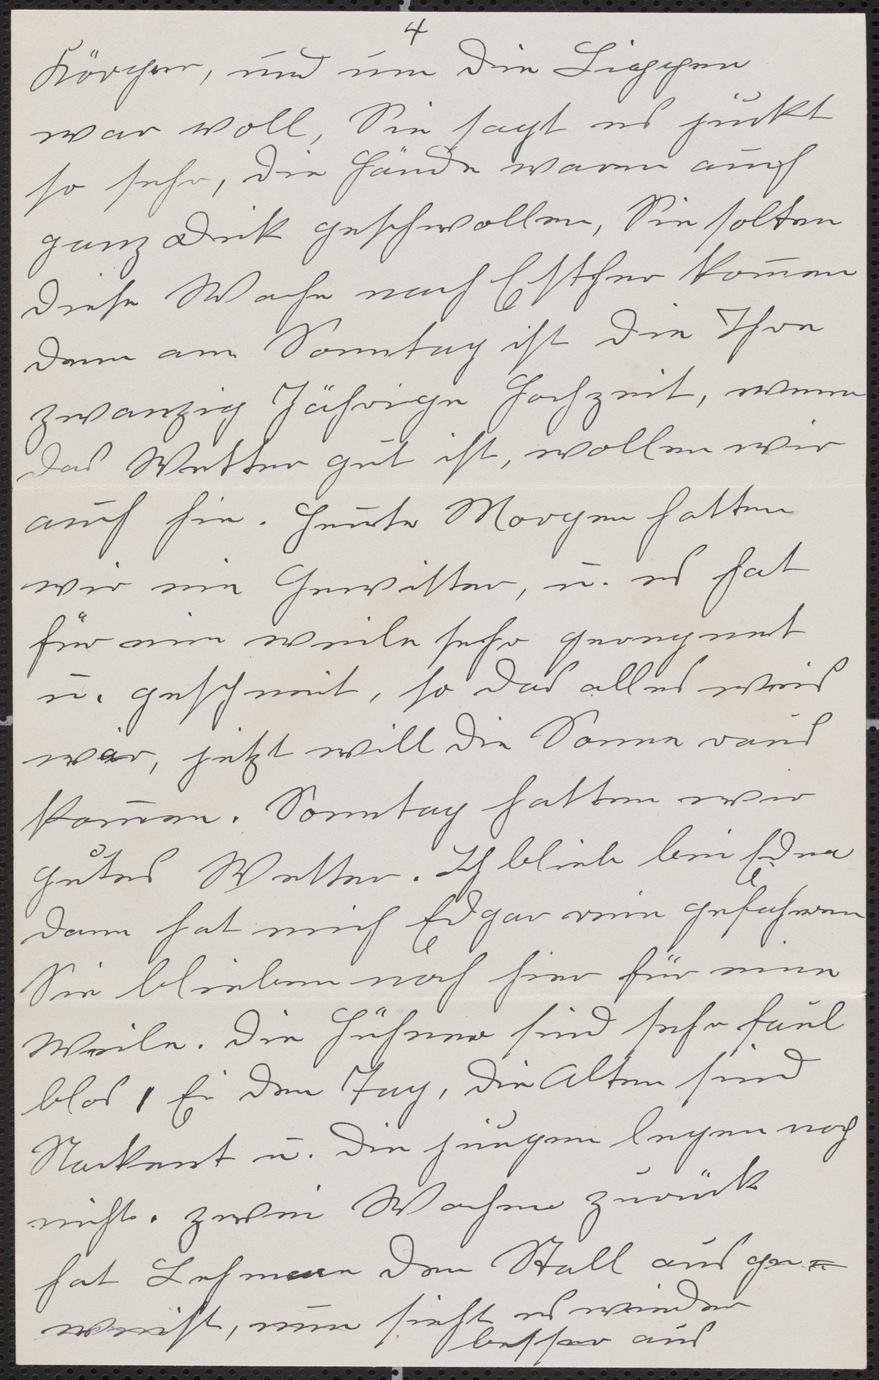 4
Körper, und um die Lippen
war voll, Sie sagt es juckt
so sehr, die Hände waren auch
ganz dick geschwollen, Sie solten
diese Woche nach Esther kom̄en
denn am Sonntag ist die Ihre
zwanzig Jährige Hochzeit, wenn
das Wetter gut ist, wollen wir
auch hin. Heute Morgen hatten
wir ein Gewitter, u. es hat
für eine weile sehr geregnet
u. geschneit, so das alles weis
war, jetzt will die Sonne raus
kom̄en. Sonntag hatten wir
gutes Wetter. Ich blieb bei Edna
dann hat mich Edgar rein gefahren
Sie blieben noch hier für eine
Weile. Die Hühner sind sehr faul
blos 1 Ei den Tag, die Alten sind
Nackent u. die jungen legen noch
nicht. zwei Wochen zurück
hat Lehmann den Stall aus ge=
weist, nun sieht es wieder
besser aus